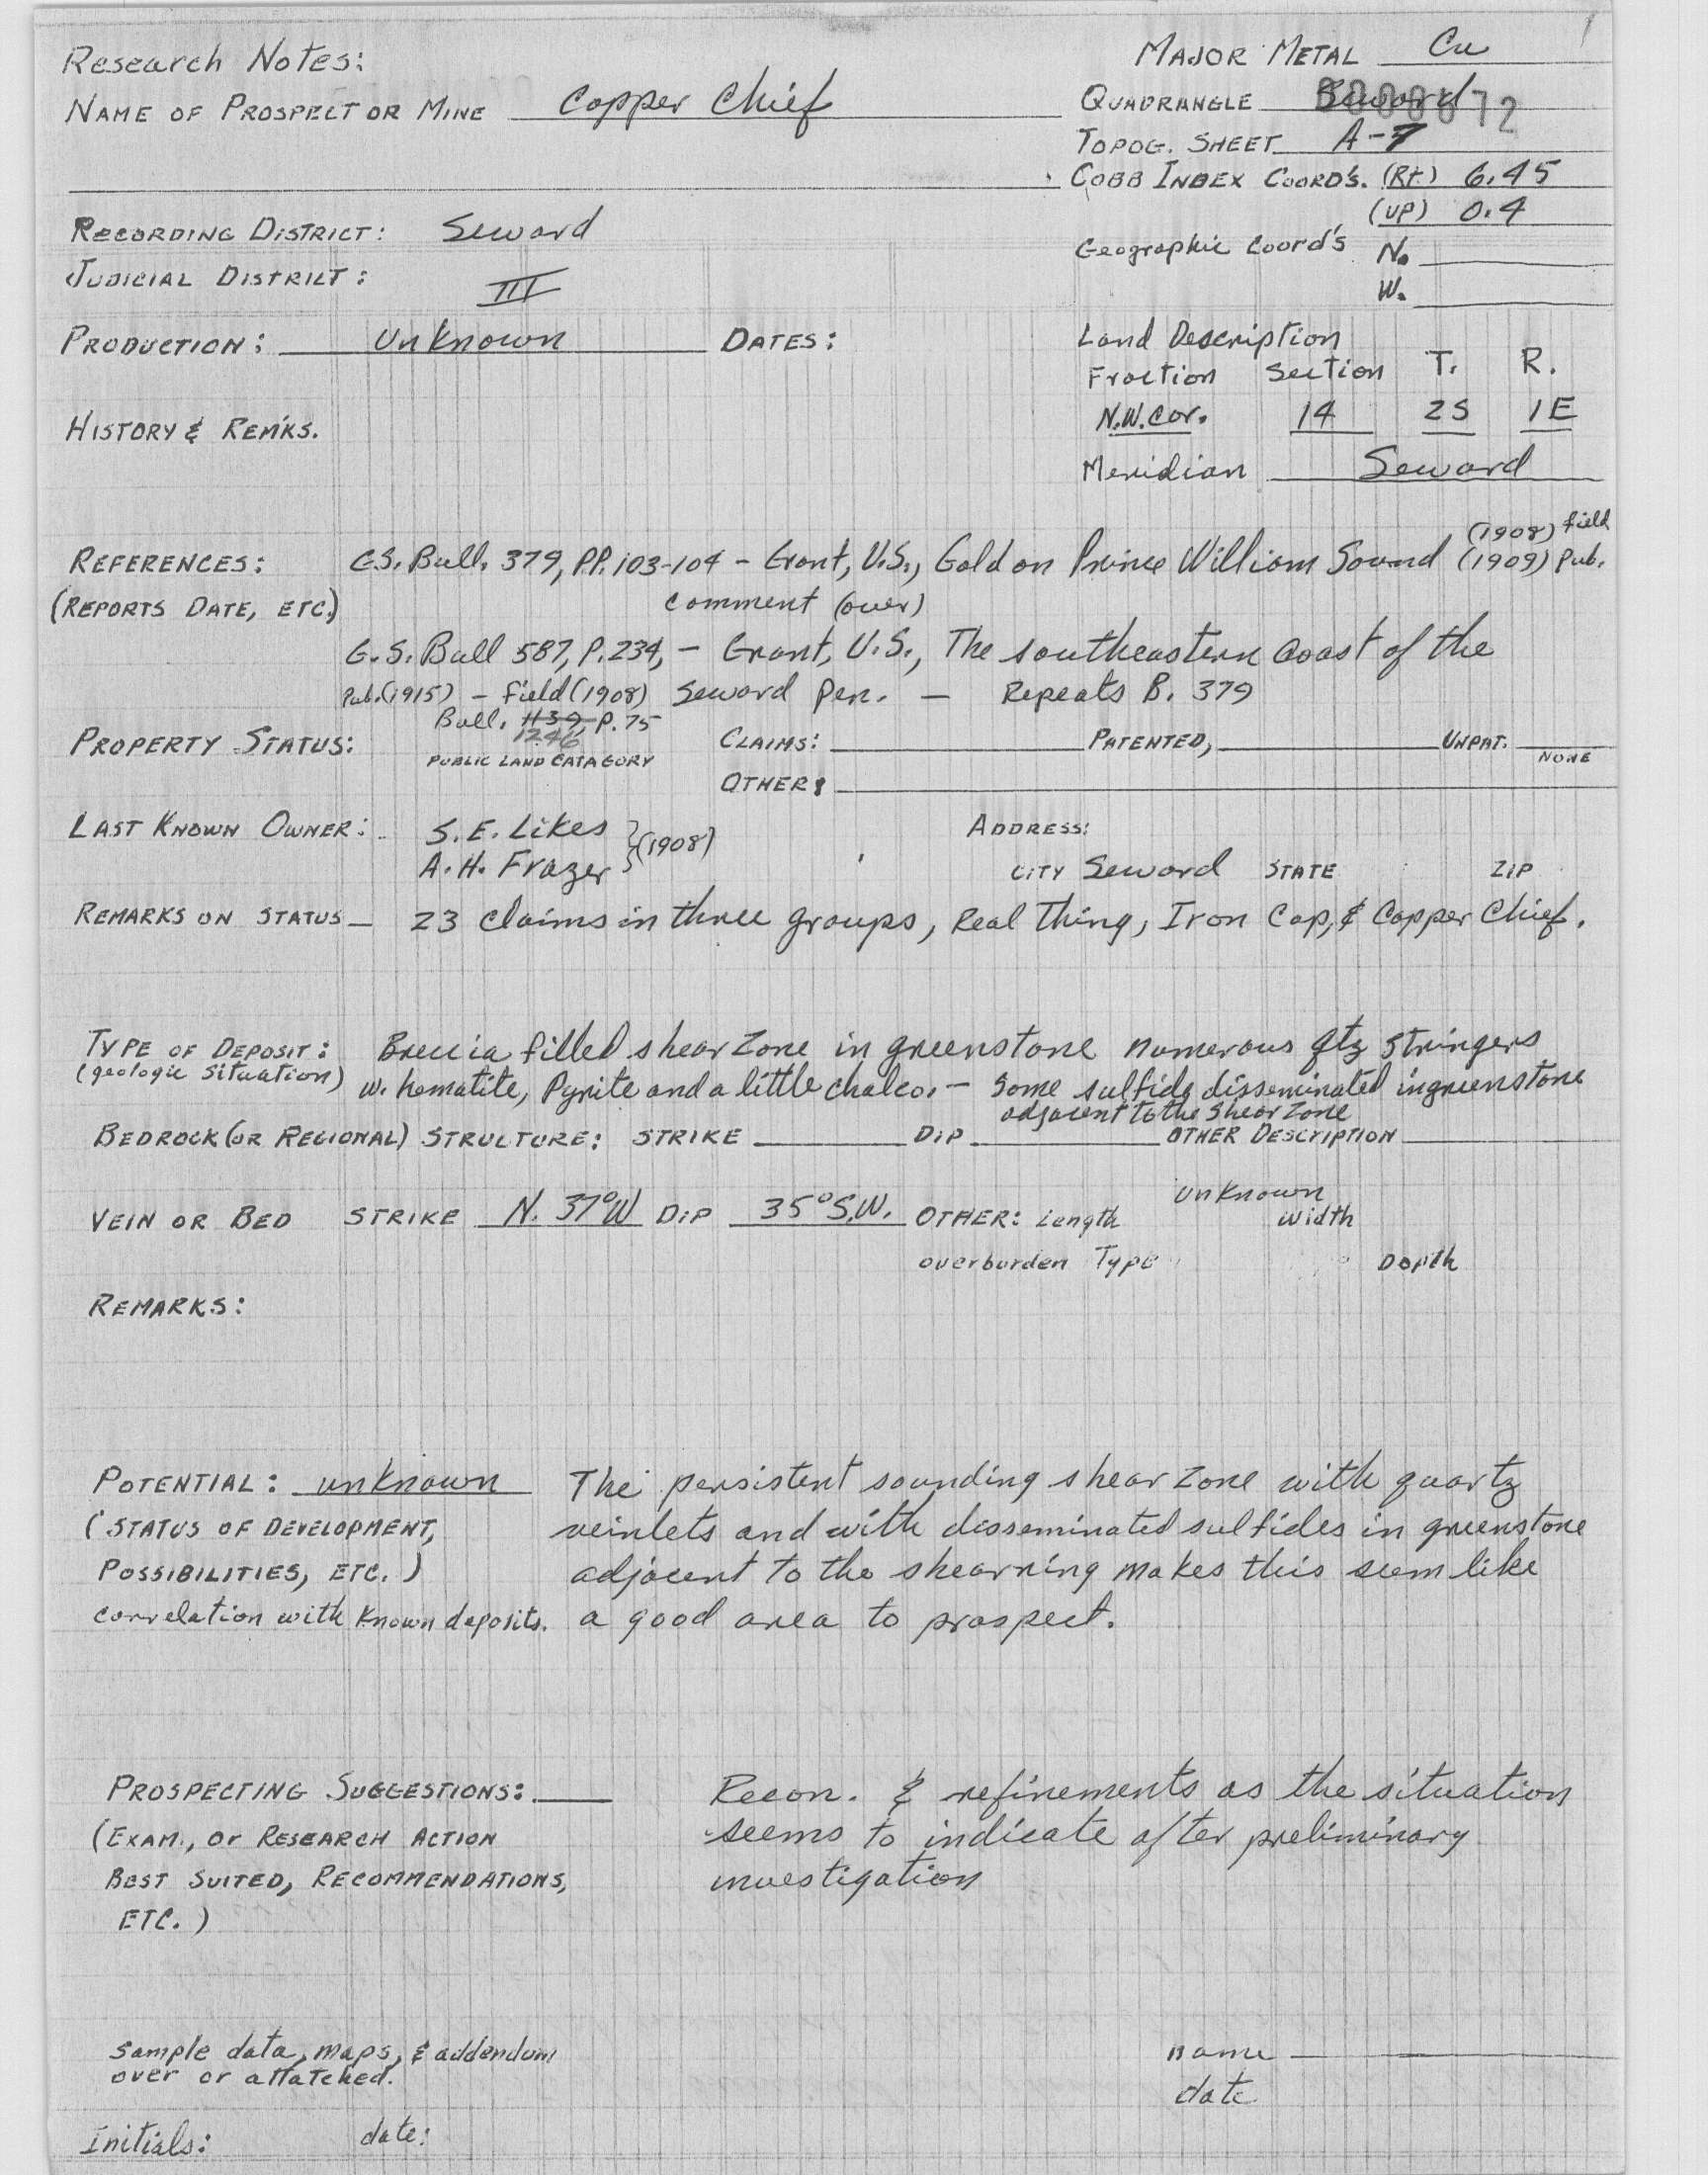 Research Notes:
MAJOR METAL Cu
NAME OF PROSPECT OR MINE Copper Chief
QUADRANGLE Seward
TOPOG. SHEET A-7
COBB INDEX COORD'S. (Rt.) 6.45
(UP) 0.4
RECORDING DISTRICT: Seward
Geographic Coord's N.
W.
JUDICIAL DISTRICT: III
PRODUCTION: Unknown DATES:
Land Description
Fraction Section T. R.
N.W. Cor. 14 2S 1E
HISTORY & REM'KS.
Meridian Seward
(1908) field
REFERENCES: G.S. Bull. 379, P.P. 103-104 - Grant, U.S., Gold on Prince William Sound (1909) Pub.
(REPORTS DATE, ETC.) comment (over)
G.S. Bull 587, P. 234, - Grant, U.S., The southeastern Coast of the
Pub. (1915) - field (1908) Seward Pen. - Repeats B. 379
Bull. 1139, P. 75
1246
PROPERTY STATUS: PUBLIC LAND CATAGORY CLAIMS: PATENTED, UNPAT.
NONE
OTHER:
LAST KNOWN OWNER: S.E. Likes
A.H. Frazer } (1908)
ADDRESS:
CITY Seward STATE ZIP
REMARKS ON STATUS - 23 claims in three groups, Real Thing, Iron Cap, & Copper Chief.
TYPE OF DEPOSIT: Breccia filled shear zone in greenstone numerous qtz stringers
(geologic situation) w. hematite, Pyrite and a little chalco. - Some sulfide disseminated in greenstone
adjacent to the shear zone
BEDROCK (OR REGIONAL) STRUCTURE: STRIKE DIP OTHER DESCRIPTION
Unknown
VEIN OR BED STRIKE N. 37° W DIP 35° S.W. OTHER: Length Width
overburden Type Depth
REMARKS:
POTENTIAL: unknown The persistent sounding shear zone with quartz
(STATUS OF DEVELOPMENT, veinlets and with disseminated sulfides in greenstone
POSSIBILITIES, ETC.) adjacent to the shearning makes this seem like
correlation with known deposits. a good area to prospect.
PROSPECTING SUGGESTIONS: Recon. & refinements as the situation
(EXAM., or RESEARCH ACTION seems to indicate after preliminary
BEST SUITED, RECOMMENDATIONS, investigation
ETC.)
Sample data, maps, & addendum
over or attatched.
name
date
Initials: date: